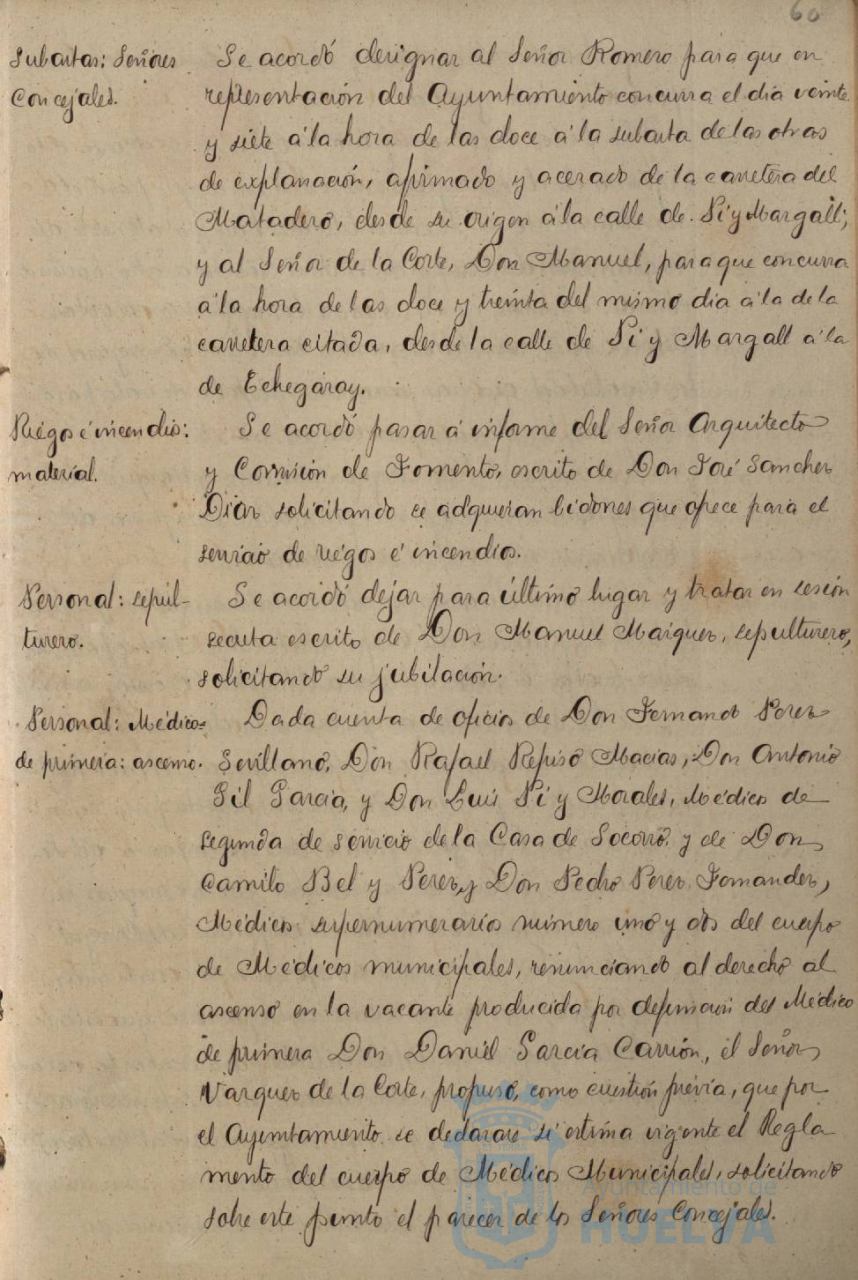 60
Subastas: Señores
Concejales.
Se acordó designar al Señor Romero para que en
representación del Ayuntamiento concurra el día veinte
y siete á la hora de las doce á la subasta de las obras
de explanación, afirmado y acerado de la carretera del
Matadero, desde su origen á la calle de Pi y Margall;
y al Señor de la Corte, Don Manuel, para que concurra
á la hora de las doce y treinta del mismo día á la de la
carretera citada, desde la calle de Pi y Margall á la
de Echegaray.
Riegos é incendios:
material.
Se acordó pasar á informe del Señor Arquitecto
y Comisión de Fomento, escrito de Don José Sanchez
Diaz solicitando se adquieran bidones que ofrece para el
servicio de riegos é incendios.
Personal: sepul-
turero.
Se acordó dejar para último lugar y tratar en sesión
secreta escrito de Don Manuel Marquez, sepulturero,
solicitando su jubilación.
Personal: Médico
de primera: ascenso.
Dada cuenta de oficios de Don Fernando Perez
Sevillano, Don Rafael Repiso Macias, Don Antonio
Gil Garcia, y Don Luis Pi y Morales, Médicos de
segunda de servicio de la Casa de Socorro, y de Don
Camilo Bel y Perez, y Don Pedro Perez Fernandez,
Médicos supernumerarios número uno y dos del cuerpo
de Médicos municipales, renunciando al derecho al
ascenso en la vacante producida por defunción del Médico
de primera Don Daniel Garcia Carrión, el Señor
Vazquez de la Corte, propuso, como cuestión previa, que por
el Ayuntamiento se declarase si estima vigente el Regla
mento del cuerpo de Médicos Municipales, solicitando
sobre este punto el parecer de los Señores Concejales.
Ayuntamiento de
HUELVA